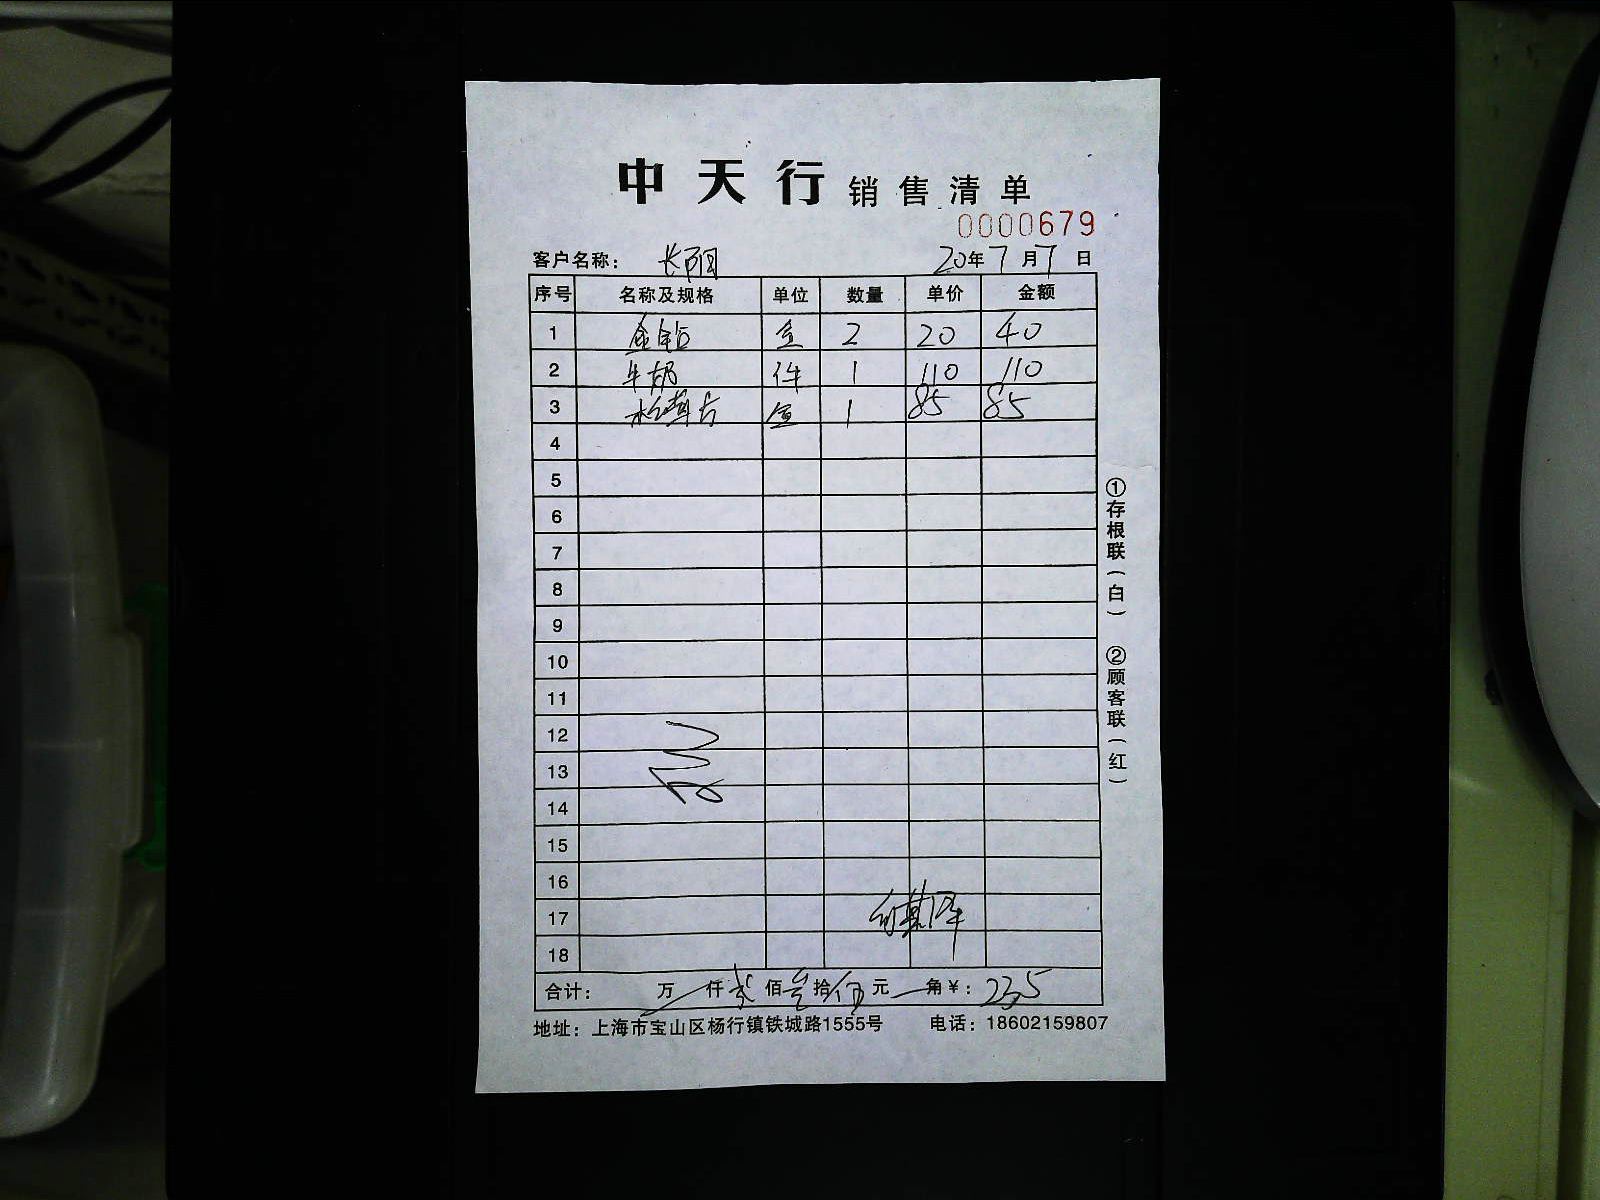 中天行 销售清单
0000679
客户名称： 长阳 20年7月7日
序号 名称及规格 单位 数量 单价 金额
1 金钻 盒 2 20 40
2 牛奶 件 1 110 110
3 盒 1 85 85
4
5
6
7
8
9
10
11
12
13
14
15
16
17
18
合计： 万 仟 贰 佰 叁 拾 伍 元 角 ¥： 235
地址：上海市宝山区杨行镇铁城路1555号 电话：18602159807
①存根联（白）
②顾客联（红）